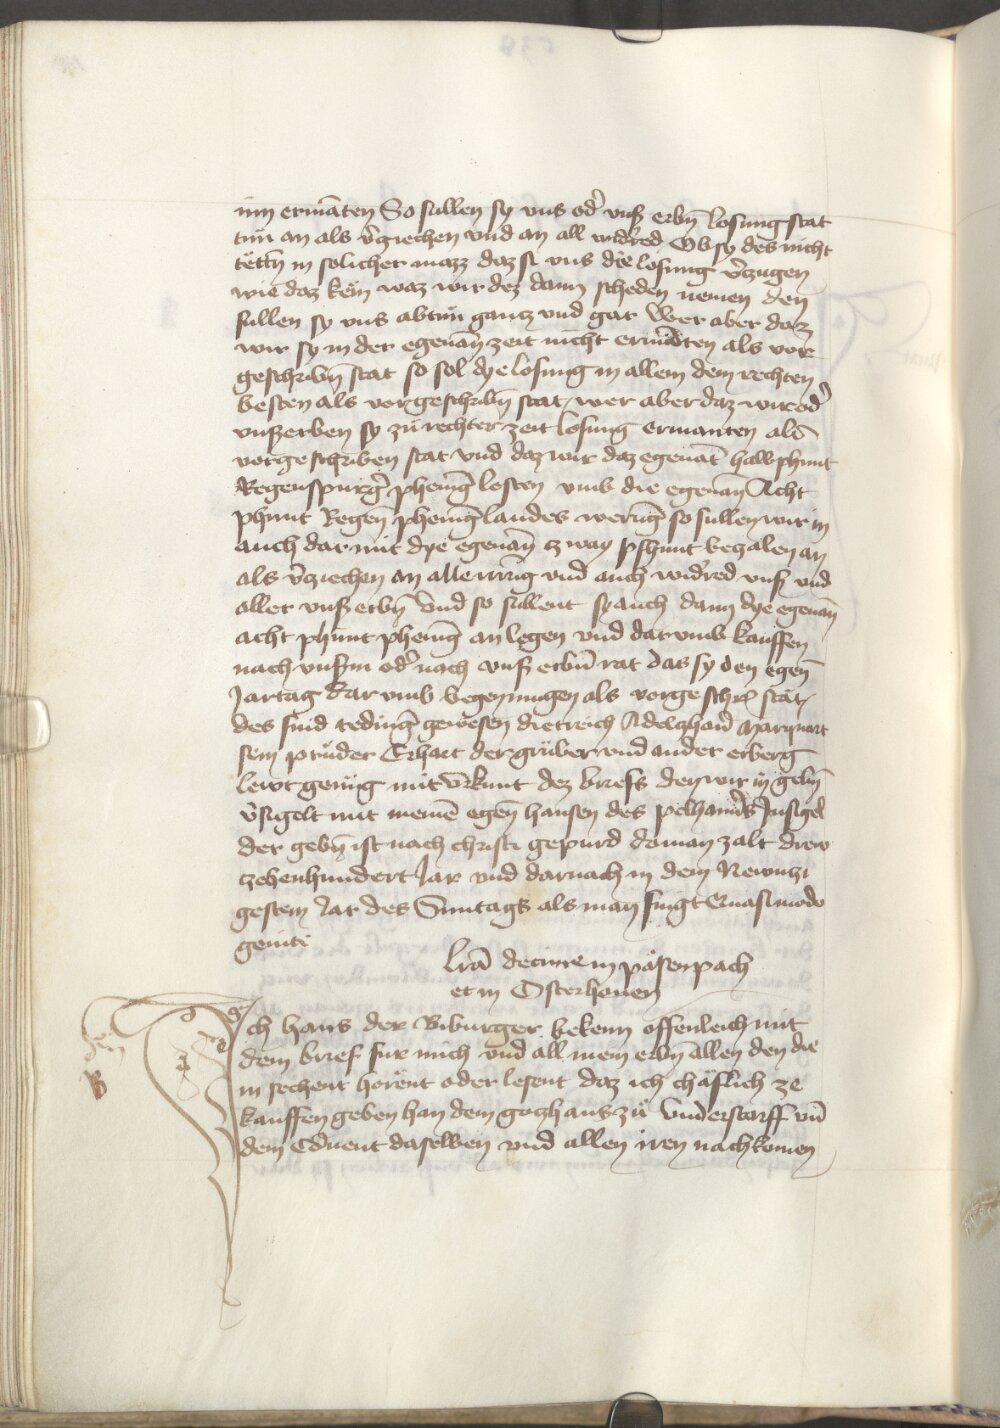 inn ermāten So sullen sy vns od̉ vnß erbn̄ losung stat
tun an als v̉ziechen vnd an all wid̉red Ob sy des nicht
tëttn̄ in solicher mazz daz si vns dÿe losung v̉zugen
wie daz këm waz wir dez dann scheden nemen den
sullen sy vns abtun gantz vnd gar Wer aber daz
wir sy in der egenān̄ zeit nicht ermāten als vor
geschribn̄ stat so sol dye losung in allem dem rechten
besten als vorgeschribn̄ stat / wer aber daz wir od̉
vnß erben sy zu rechter zeit losung ermanten als
vorgeschriben stat vnd daz wir daz egenāt halb phunt
Regenspurg̉ phenīg losten vmb die egenan̄ Acht
phunt Regen̄ phenīg landes werūg so sullen wir in
auch dar mit dye egenan̄ zway pfhunt bezalen an
als v̉ziechen an alle irrūg vnd auch wid̉red vnß vnd
aller vnß erbn̄ Vnd so sullent sy auch dann dye egenan̄
acht phunt phenīg an legen vnd dar vmb kauffen
nach vnßm od̉ nach vnß erbn̄ rat das sy den egen̄
Jartag dar vmb begenn mugen als vorgeschr̄ stat /
des sind tedīng̉ gewesen dietreich Adeltzhaus̉ Marquart
sein pruder Erhart der grüber vnd ander erberg
lewt genüg mit vrkunt dez briefs den wir in gebn̄
v̉sigelt mit meinē egen̄ hansen des pelhaim̉s Insigel
der gebn̄ ist nach christi gepurd do man zalt drew
zehenhundert Jar vnd darnach in dem Newntzi
gestem Jar des Suntags als man singt Quasimodo
geniti
lr̄a decime in päsenpach
et in Osterhouen
Ich hans der Biburger bekenn offenleich mit
dem brief fur mich vnd all mein erbn̄ allen den die
in sechent hörent oder lesent daz ich chäflich ze
kauffen geben han dem gotzhaus zü Vnderstorff vn̄
dem Cōuent daselben vnd allen iren nachkomen